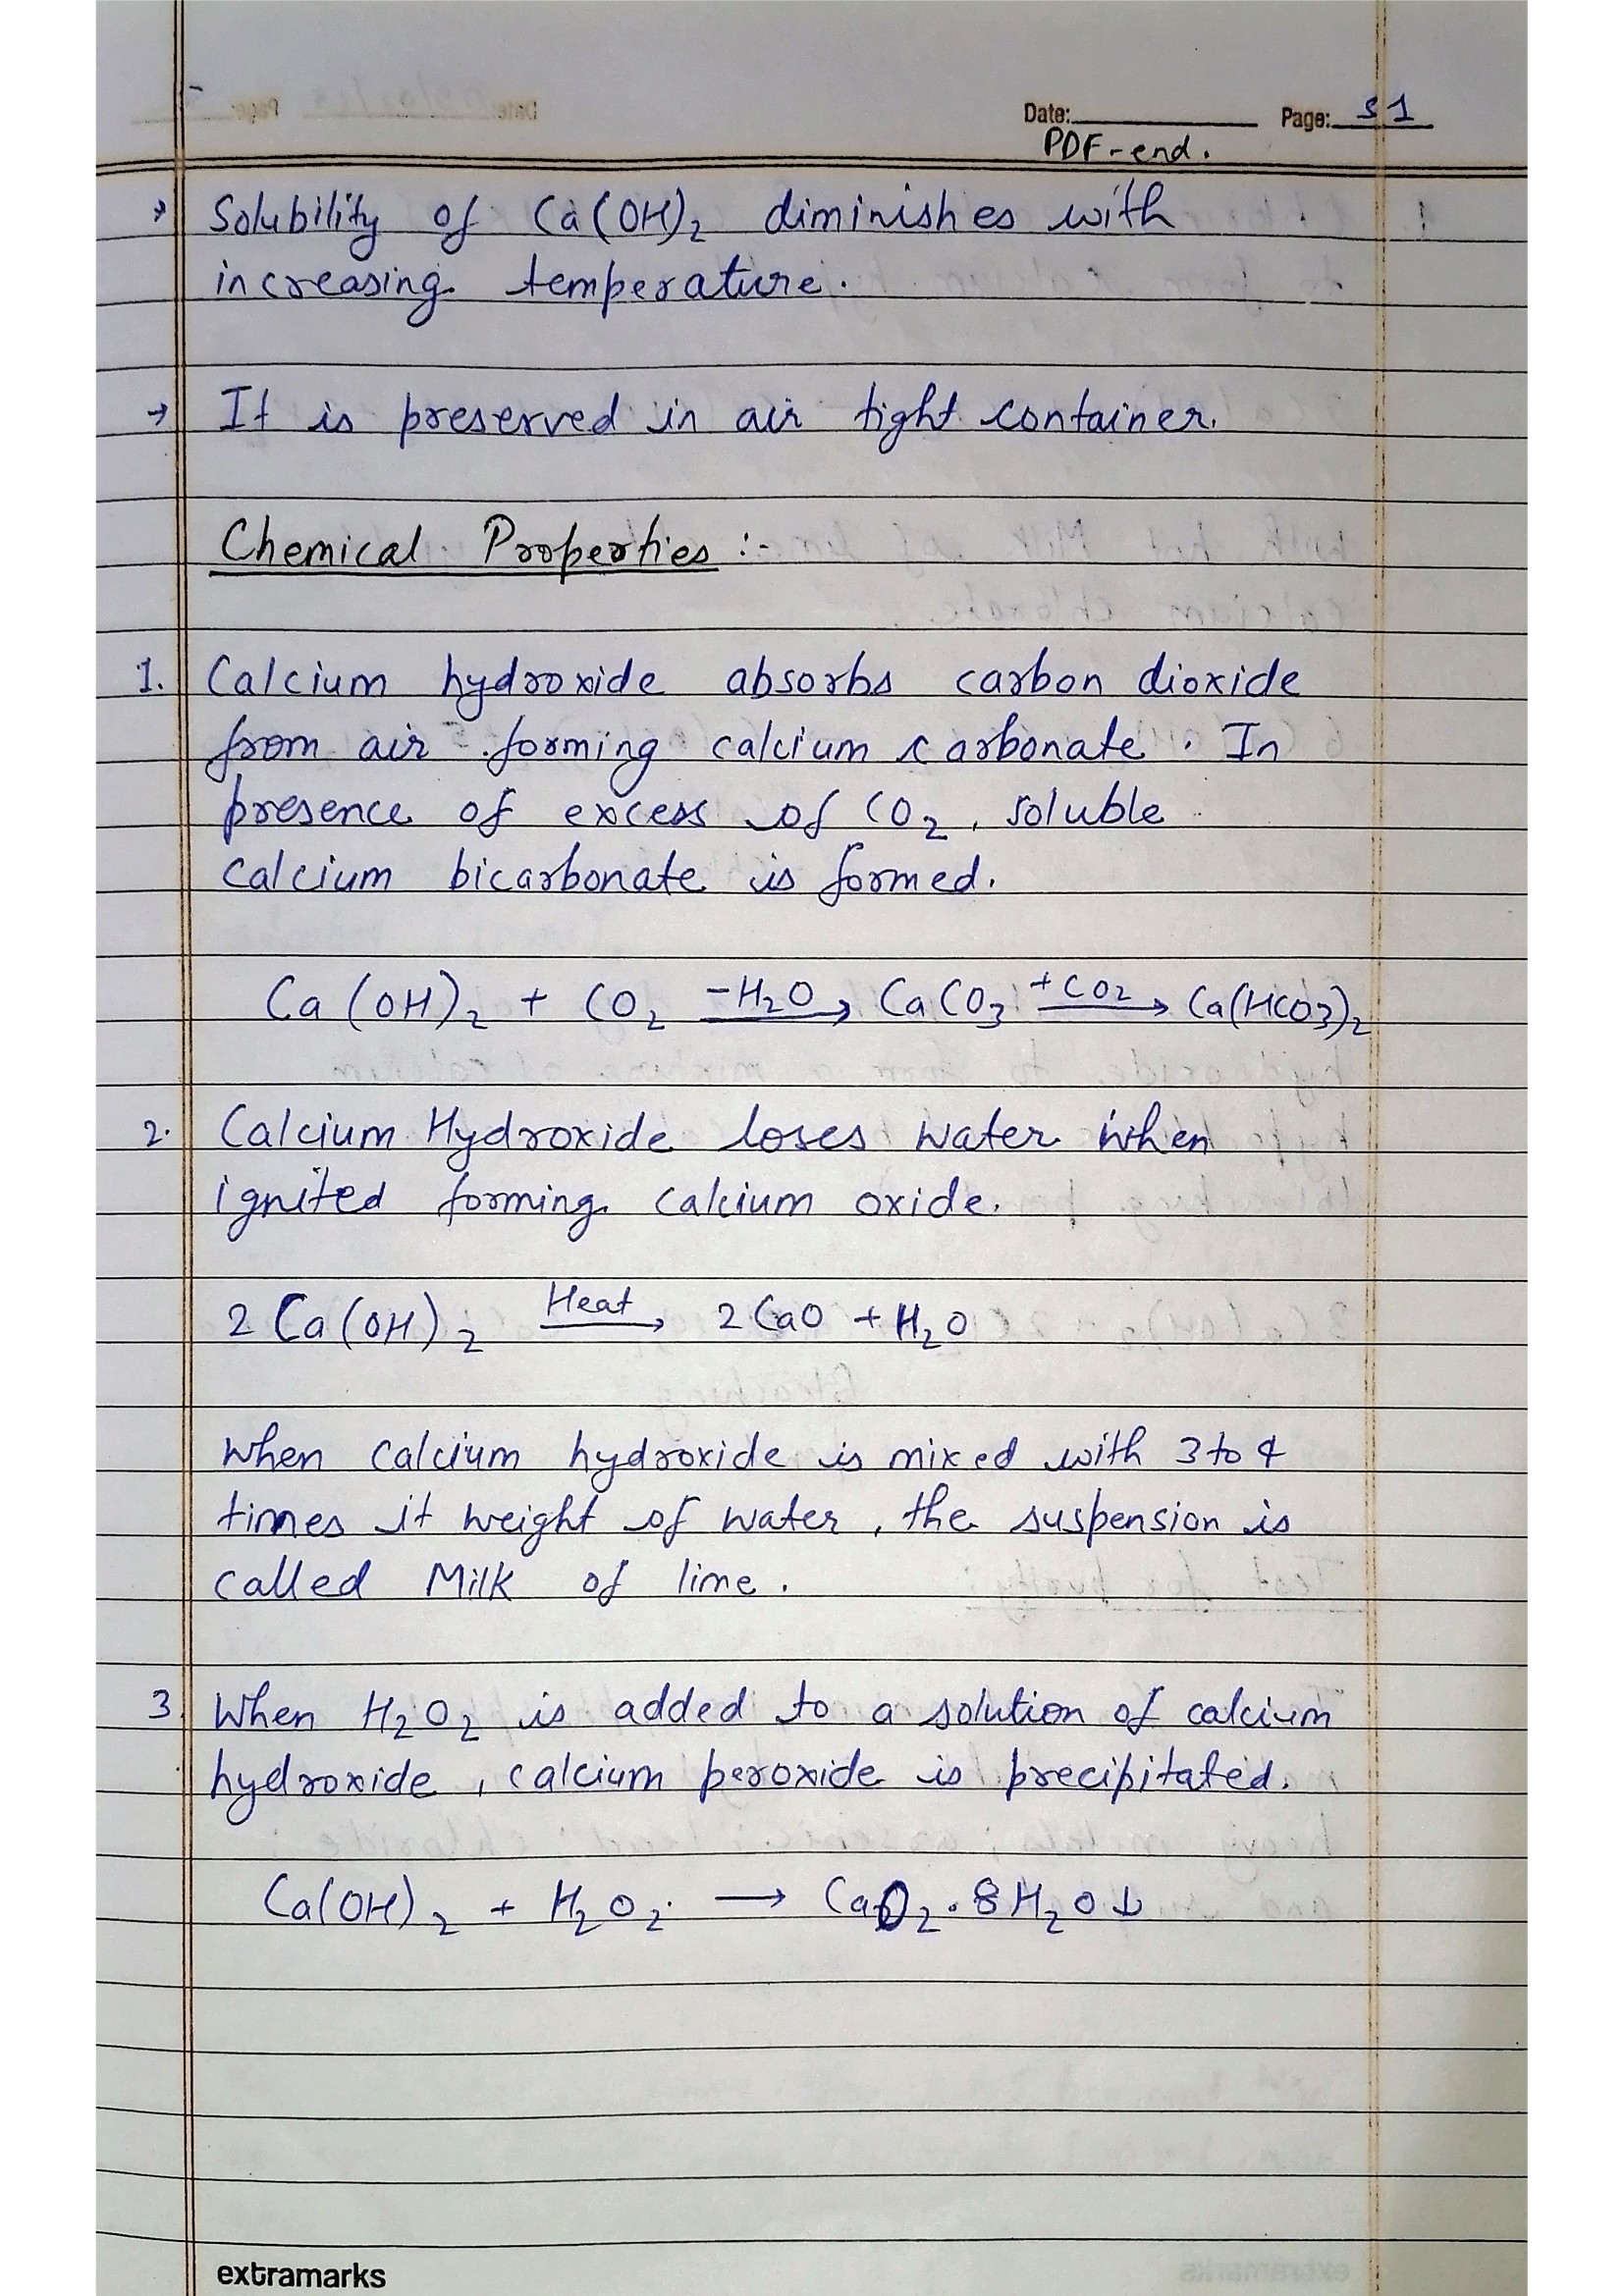 Date: Page: 51
PDF-end.
→ Solubility of Ca(OH)₂ diminishes with
increasing temperature.
→ It is preserved in air tight container.
Chemical Properties :-
1. Calcium hydroxide absorbs carbon dioxide
from air forming calcium carbonate. In
presence of excess of CO₂, soluble
calcium bicarbonate is formed.
Ca(OH)₂ + CO₂ -H₂O→ CaCO₃ +CO₂→ Ca(HCO₃)₂
2. Calcium Hydroxide loses water when
ignited forming calcium oxide.
2 Ca(OH)₂ Heat→ 2 CaO + H₂O
When calcium hydroxide is mixed with 3 to 4
times it weight of water, the suspension is
called Milk of lime.
3. When H₂O₂ is added to a solution of calcium
hydroxide, calcium peroxide is precipitated.
Ca(OH)₂ + H₂O₂ → CaO₂·8H₂O↓
extramarks